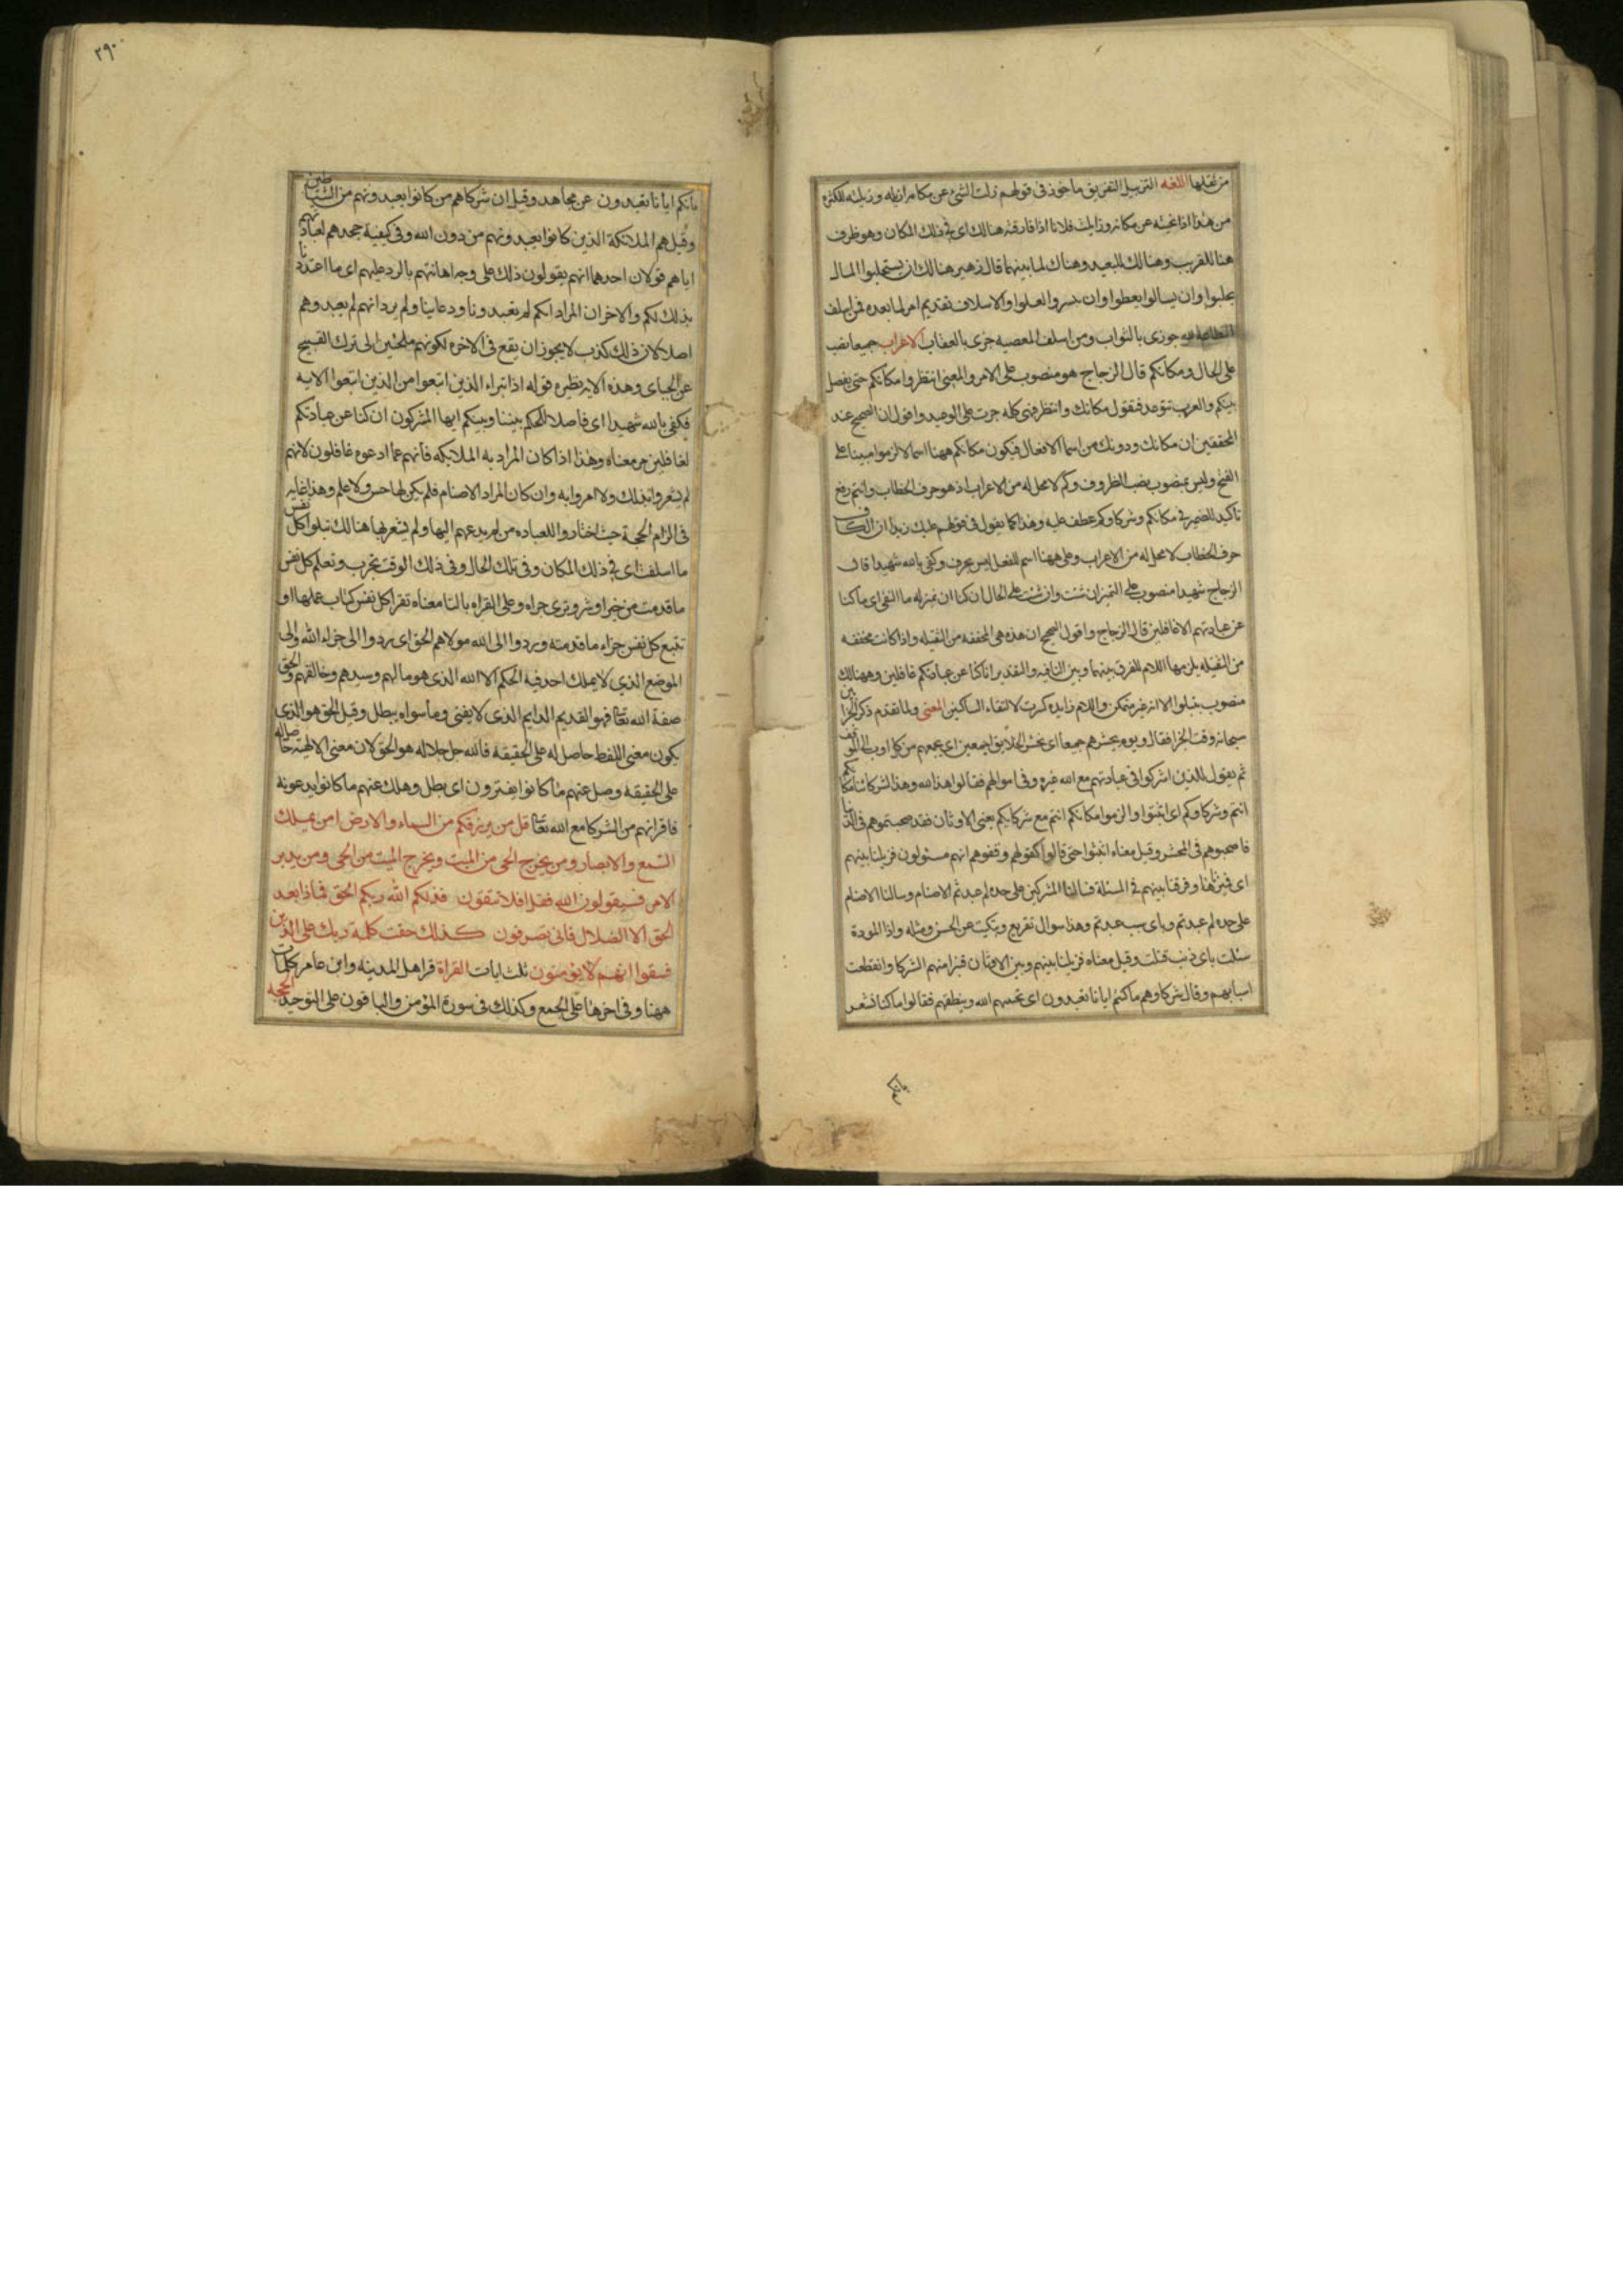 من نقلها اللغه التزييل التفريق ماخوذ فى قولهم زلت الشئ عن مكانه ازيله وزيلته للكثره
من هذا اذا نحيته عن مكانه وزايلت فلانا اذا فارقته هنالك اى فى ذلك المكان وهو ظرف
هنا للقريب وهنالك للبعيد وهناك لما بينهما قال زهير هنالك ان يستخبلوا المال
يخبلوا وان يسالوا يعطوا وان يسروا يغلوا والاسلاف تقديم امر لما بعده فمن اسلف
الطاعه جوزى بالثواب ومن اسلف المعصيه جزى بالعقاب الاعراب جميعا نصب
على الحال ومكانكم قال الزجاج هو منصوب على الامر والمعنى انتظروا مكانكم حتى يفصل
بينكم والعرب تتوعد فتقول مكانك وانتظر فهى كله جرت على الوعيد واقول ان الصحيح عند
المحققين ان مكانك ودونك من اسما الافعال فيكون مكانكم ههنا اسما لالزموا مبينا على
الفتح وليس بمنصوب نصب الظروف وكم لا محل له من الاعراب اذ هو حرف الخطاب وانتم رفع
تاكيد للضمير فى مكانكم وشركاوكم عطف عليه وهذا كما يقول فى قولهم عليك زيدا ان الكاف
حرف الخطاب لا محل له من الاعراب وعلى ههنا اسم للفعل ليس بحرف وكفى بالله شهيدا قال
الزجاج شهيدا منصوب على التميزان شئت وان شئت على الحال ان كنا ان بمنزله ما النفى اى ما كنا
عن عبادتهم الا غافلين قال الزجاج واقول الصحيح ان هذه هى المخففه من الثقيله واذا كانت مخففه
من الثقيله يلزمها اللام للفرق بينها وبين النافيه والتقدير اناكنا عن عبادتكم غافلين وههنالك
منصوب بتبلوا الا انه غير متمكن واللام زايده كسرت لالتقاء الساكنين المعنى ولما تقدم ذكر الجزا بين
سبحانه وقت الجزا فقال ويوم يحشرهم جميعا اى نحشر الخلايق اجمعين اى نجمعهم من كل اوب الى الموقف
ثم يقول للذين اشركوا فى عبادتهم مع الله غيره وفى اموالهم فقالوا هذا لله وهذا لشركائنا مكانكم
انتم وشركاوكم اى اثبتوا والزموا مكانكم انتم مع شركايكم يعنى الاوثان فقد صحبتموهم فى الدنيا
فاصحبوهم فى المحشر وقيل معناه اثبتوا حتى تسالوا كقولهم وقفوهم انهم مسئولون فزيلنا بينهم
اى فميزنا وفرقنا بينهم فى المسئلة فسالنا المشركين على حده لم عبدتم الاصنام وسالنا الاصنام
على حده لم عبدتم وباى سبب عبدتم وهذا سوال تقريع وتبكيت عن الحسن ومثله واذا الموودة
سئلت باى ذنب قتلت وقيل معناه فزيلنا بينهم وبين الاوثان فتبرا منهم الشركا وانقطعت
اسبابهم وقال شركاوهم ماكنتم ايانا تعبدون اى يحييهم الله وينطقهم فقالوا ما كنا نشعر
بانكم
٢٩٠
بانكم ايانا تعبدون عن مجاهد وقيل ان شركاهم من كانوا يعبدونهم من الشياطين
وقيل هم الملائكة الذين كانوا يعبدونهم من دون الله وفى كيفية جحدهم لعبادتهم
اياهم قولان احدهما انهم يقولون ذلك على وجه اهانتهم بالرد عليهم اى ما اعتددنا
بذلك لكم والاخر ان المراد انكم لم تعبدونا ودعاينا ولم يرد انهم لم يعبدوهم
اصلا لان ذلك كذب لا يجوز ان يقع فى الاخره لكونهم ملجئين الى ترك القبيح
عن الجباى وهذه الايه نظيره قوله اذ تبراء الذين اتبعوا من الذين اتبعوا الايه
فكفى بالله شهيدا اى فاصلا للحكم بيننا وبينكم ايها المشركون ان كنا عن عبادتكم
لغافلين مر معناه وهذا اذا كان المراد به الملايكه فانهم عما ادعوه غافلون لانهم
لم يشعروا بذلك ولا امروا به وان كان المراد الاصنام فلم يكن لها حس ولا علم وهذا غايه
فى الزام الحجة حيث اختاروا للعباده من لم يدعهم اليها ولم يشعر بها هنالك تبلوا كل نفس
ما اسلفت اى فى ذلك المكان وفى تلك الحال وفى ذلك الوقت تجرب وتعلم كل نفس
ما قدمت من خير او شر وترى جزاه وعلى القراه بالتا معناه تقرا كل نفس كتاب عملها او
تتبع كل نفس جزاء ما قدمته وردوا الى الله مولاهم الحق اى ردوا الى جزاء الله والى
الموضع الذي لا يملك احد فيه الحكم الا الله الذى هو مالهم وسيدهم وخالقهم والحق
صفة الله تعالى فهو القديم الدايم الذى لا يفنى وما سواه يبطل وقيل الحق هو الذى
يكون معنى اللفظ حاصل له على الحقيقة فالله جل جلاله هو الحق لان معنى الالهية حاصل له
على الحقيقة وضل عنهم ما كانوا يفترون اى بطل وهلك عنهم ما كانوا يدعونه
فاقرانهم من الشركا مع الله تعالى قل من يرزقكم من السماء والارض امن يملك
السمع والابصار ومن يخرج الحى من الميت ويخرج الميت من الحى ومن يدبر
الامر فسيقولون الله فقل افلا تتقون فذلكم الله ربكم الحق فماذا بعد
الحق الا الضلال فانى تصرفون كذلك حقت كلمة ربك على الذين
فسقوا انهم لا يؤمنون ثلث ايات القراة قرا هل المدينه وابن عامر كلمات
ههنا وفى اخرها على الجمع وكذلك فى سورة المؤمن والباقون على التوحيد الحجه